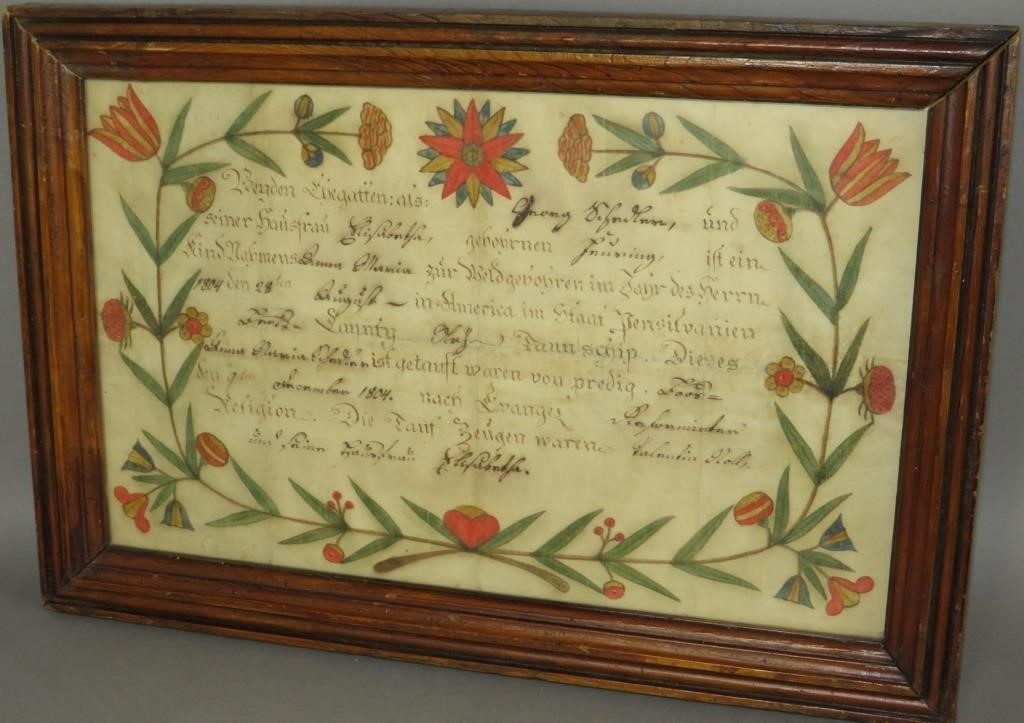 Beyden Ehegatten: als: Georg Schedler, und
seiner Hausfrau Elisabetha, gebohrnen ist ein
Kind Nahmens Anna Maria zur Welt gebohren im Jahr des Herrn
1804 den 28ten August – in America im Staat Pensilvanien
County Taunschip. Dieses
Anna Maria Schedler ist getauft waren von predig.
den 9ten December 1804. nach Evangel Reformirter
Religion. Die Tauf Zeugen waren Valentin
und seine Hausfrau Elisabetha.